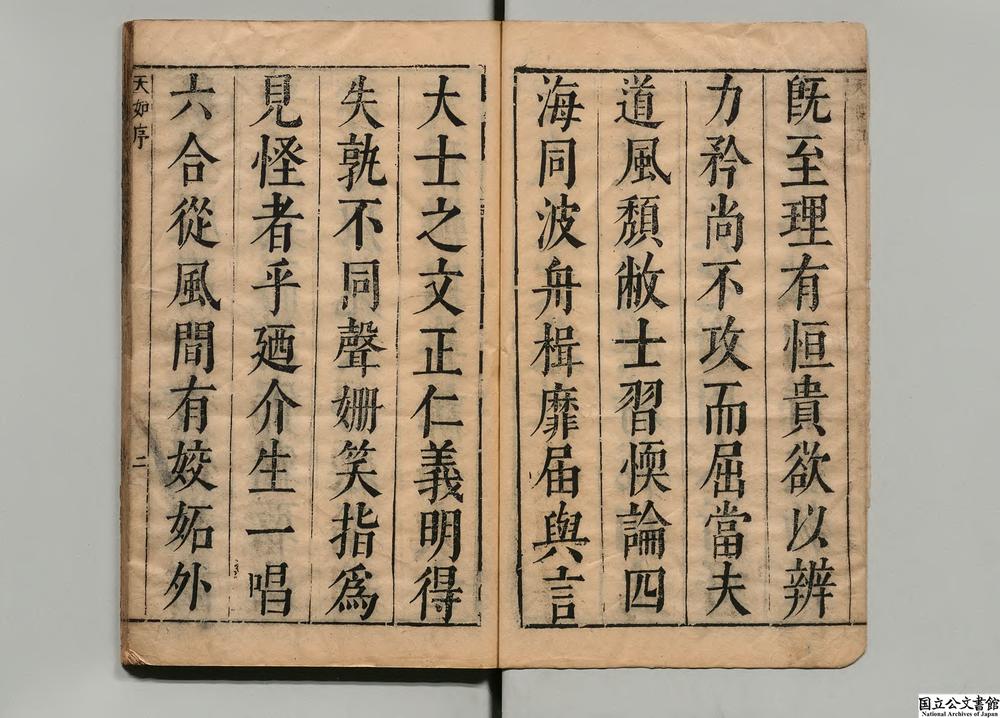 旣至理有恒貴欲以辨
力矜尚不攻而屈當夫
道風頽敝士習愞論四
海同波舟楫靡届與言
大士之文正仁義明得
失孰不同聲姍笑指爲
見怪者乎廼介生一唱
六合從風間有姣妬外
天如序
二
国立公文書館
National Archives of Japan